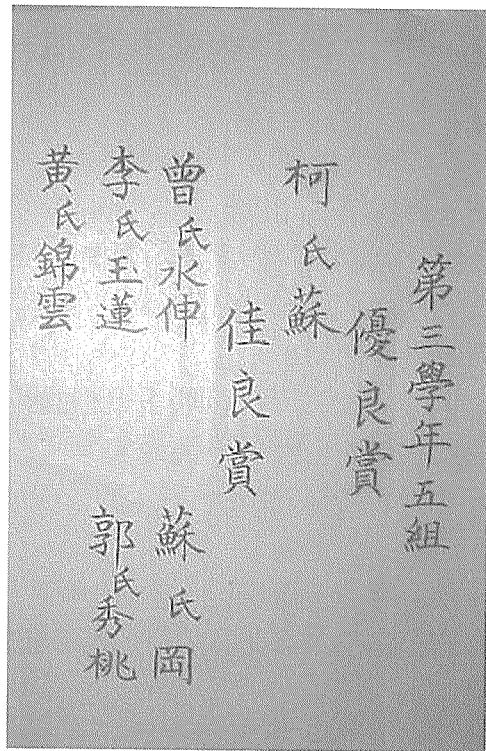 第三學年五組
優良賞
柯氏蘇
佳良賞
曾氏水伸
蘇氏岡
李氏玉蓮
郭氏秀桃
黃氏錦雲